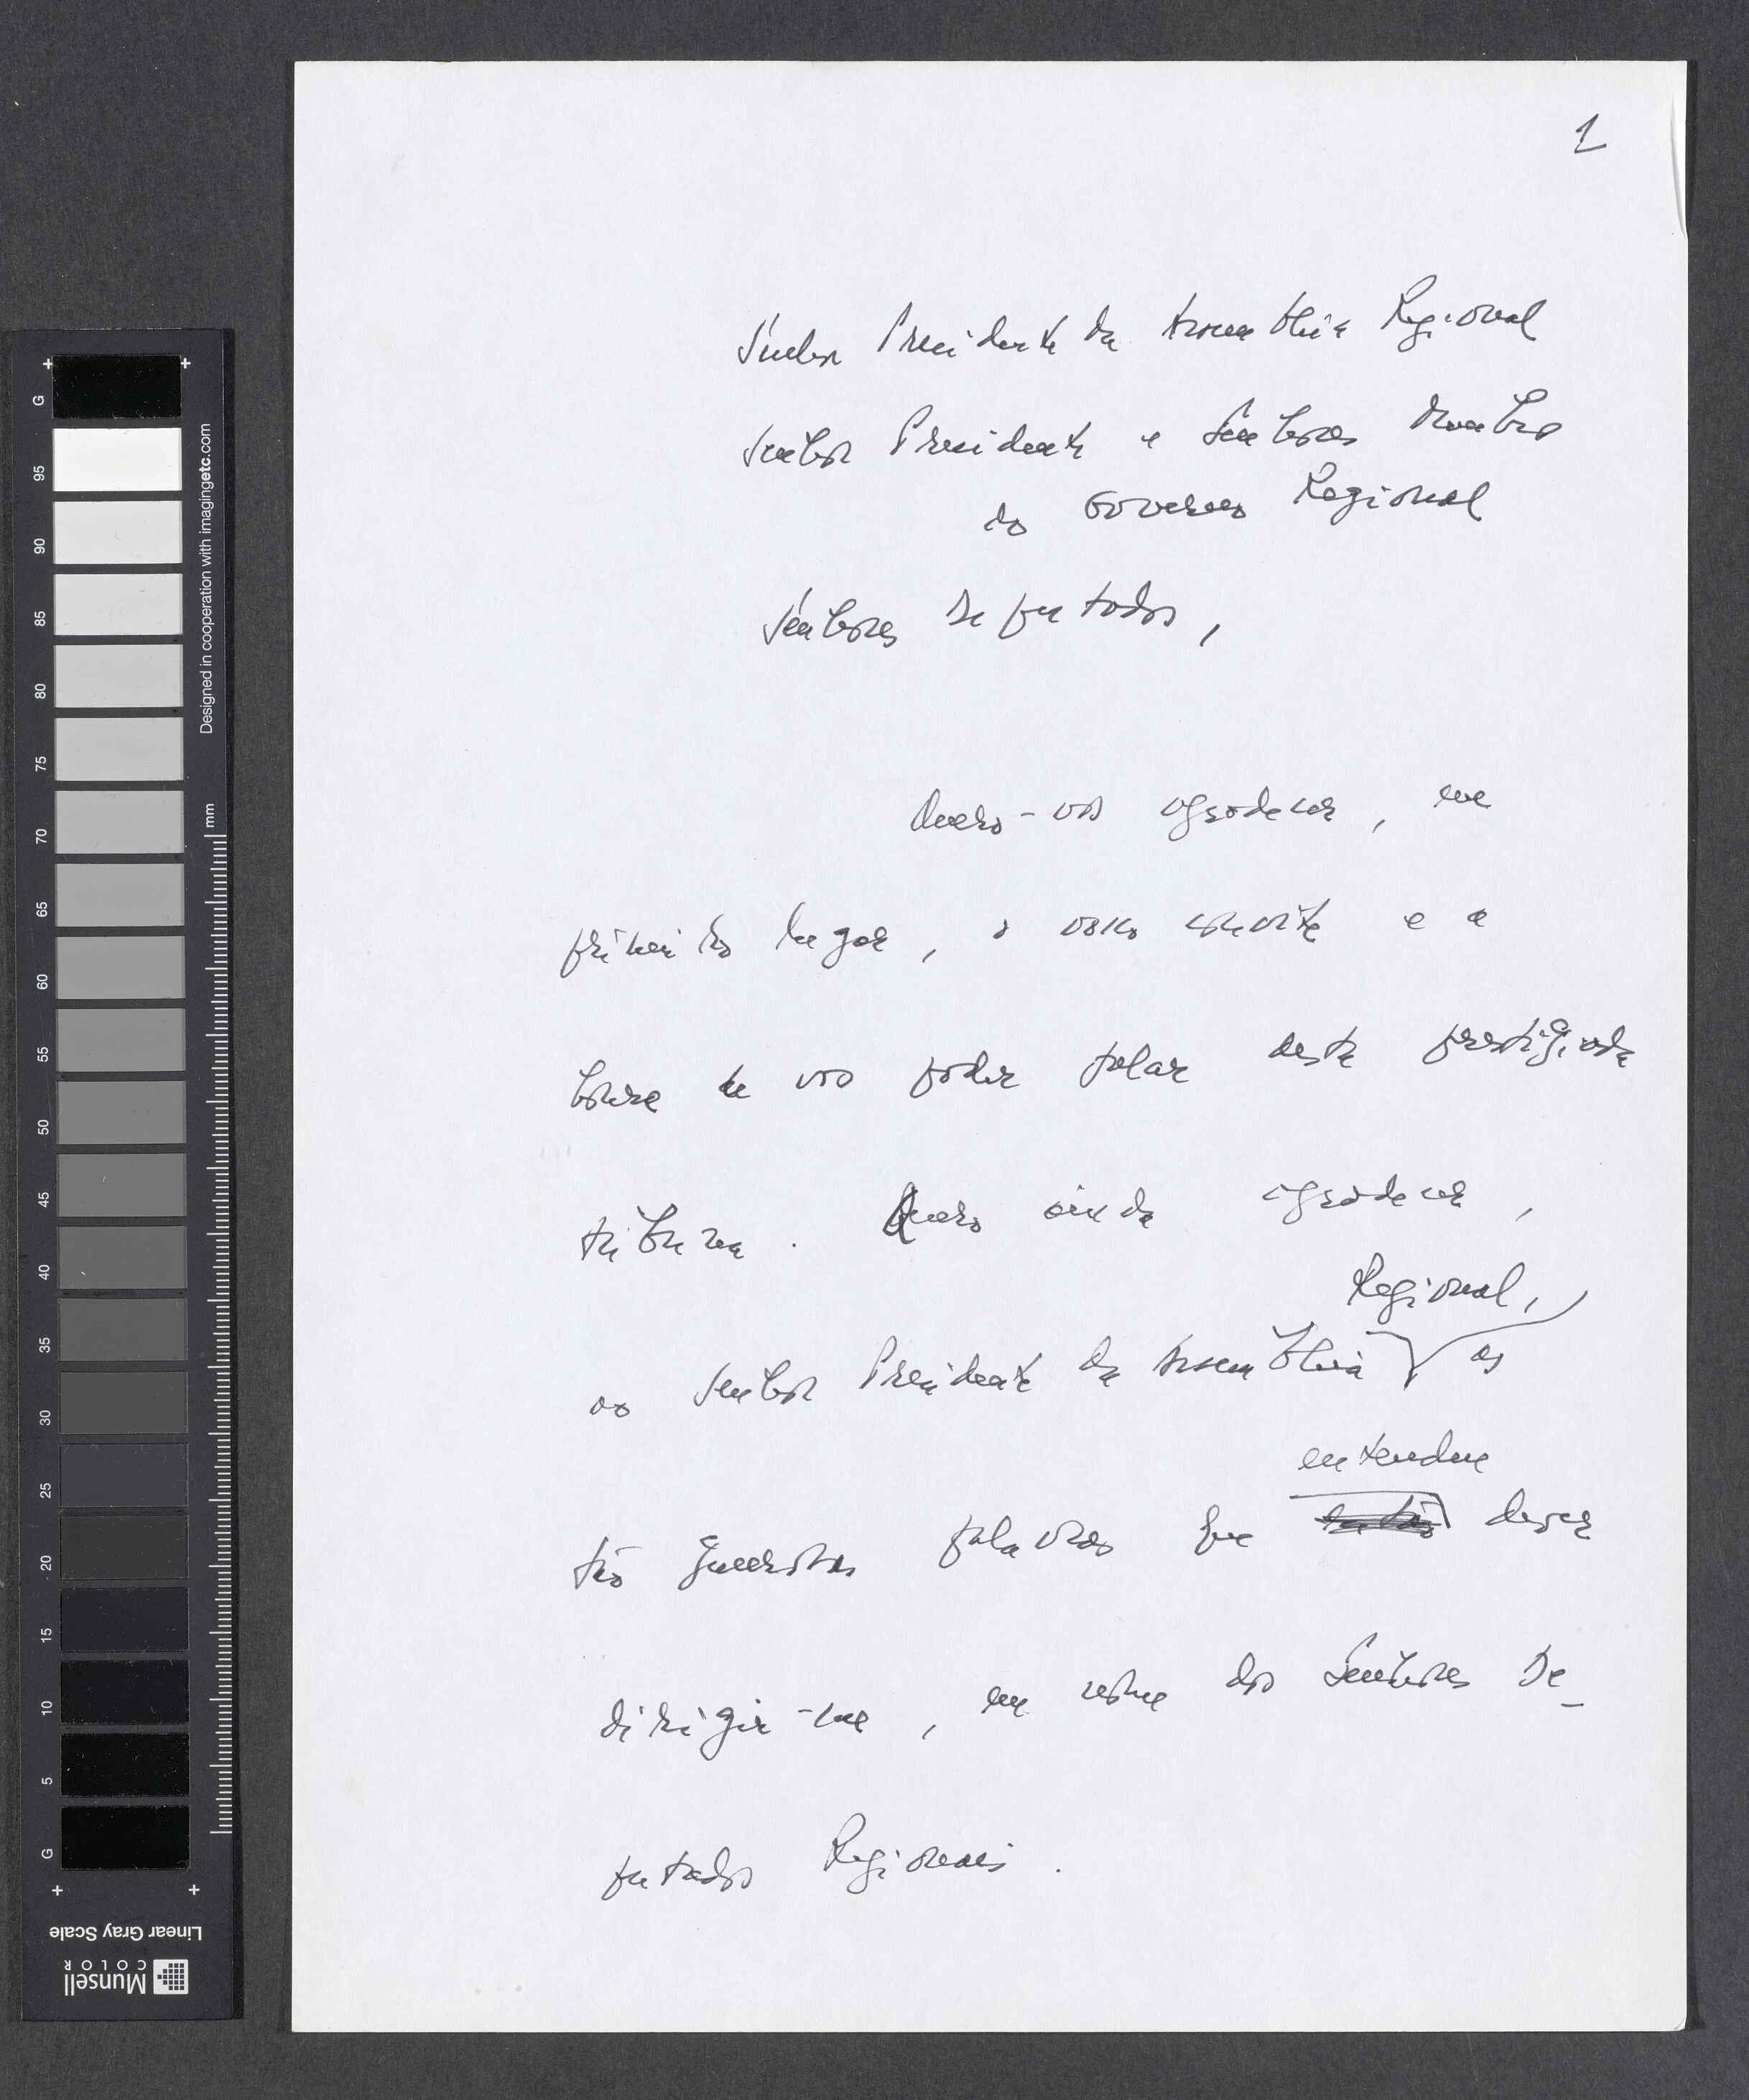 1
Senhor Presidente da Assembleia Regional
Senhor Presidente e Senhores Membros
do Governo Regional
Senhores Deputados,
Quero-vos agradecer, em
primeiro lugar, o vosso convite e a
honra de vos poder falar desta prestigiada
tribuna. Quero ainda agradecer,
Regional,
ao Senhor Presidente da Assembleia as
entendeu
tão generosas palavras que dever
dirigir-me, em nome dos Senhores De-
putados Regionais.
G
95
90
85
80
75
70
65
60
55
50
45
40
35
30
25
20
15
10
5
G
Designed in cooperation with imagingetc.com
mm
Linear Gray Scale
Munsell
COLOR